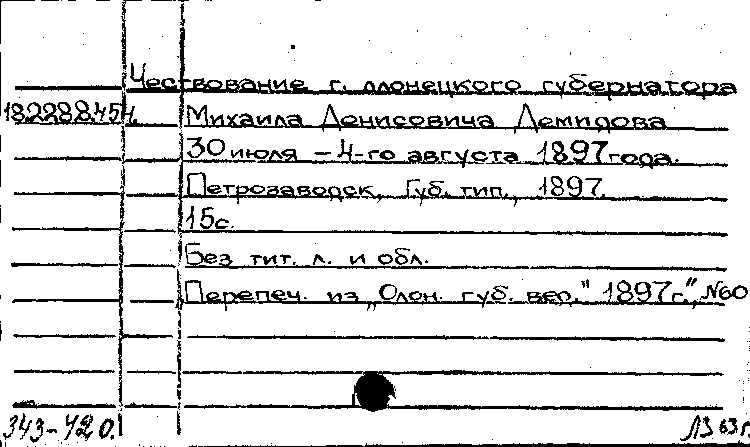 Чествование г. олонецкого губернатора
18.228.8.454. Михаила Денисовича Демидова
30 июля – 4-го августа 1897 года.
Петрозаводск, Губ. тип., 1897.
15с.
Без тит. л. и обл.
Перепеч. из „Олон. губ. вед." 1897г.", №60
343-42 О.
ЛЗ 63г